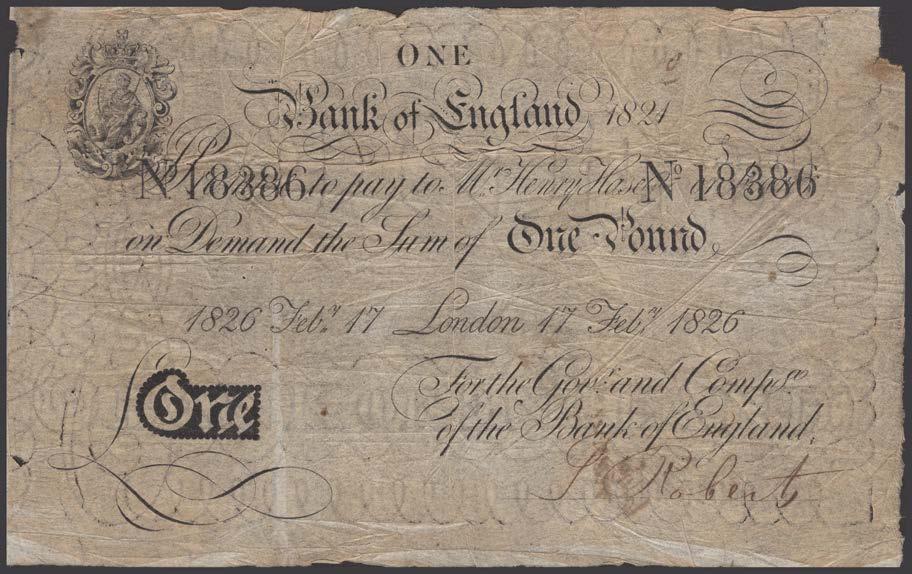 ONE
Bank of England 1821
No 18386 to pay to Mr. Henry Hase No 18386
on Demand the Sum of One Pound
1826 Feby. 17 London 17 Feby. 1826
For the Govr. and Compa. of the Bank of England.
One
Roberts